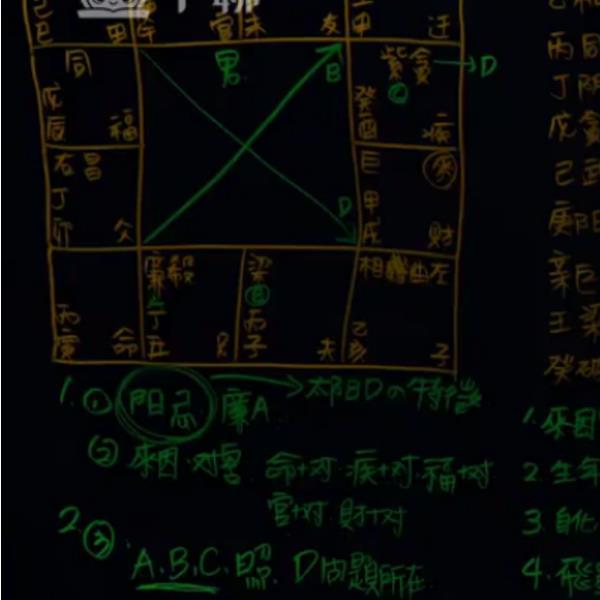 己巳 田 午 官 未 友 甲 迁
同 男 B 紫貪→D
戊辰 福 C 癸酉 疾
右昌 巨
丁卯 D 甲戌 财
廉殺 梁 相 曲左
丙寅 命 丁丑 兄 丙子 夫 乙亥 子
1. ① 阳忌 廉A →太阳D的特性
② 來因·对宫 命+对·疾+对·福+对
官+对·財+对
2. ③ A.B.C.照 D问題所在
丙同
丁阴
戊貪
己武
庚阳
辛巨
壬梁
癸破
1. 來因
2. 生年
3. 自化
4. 飛